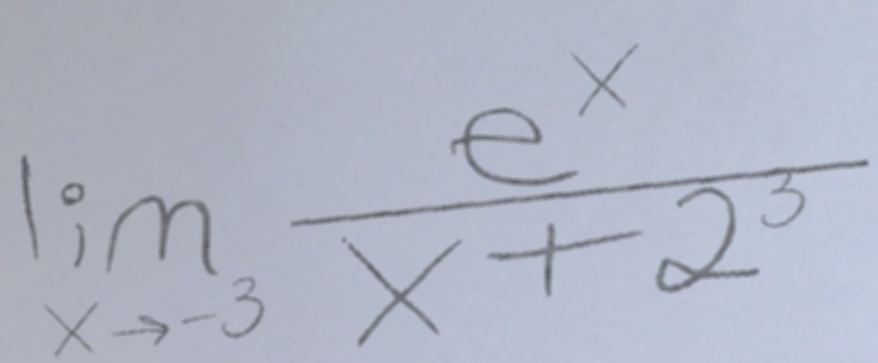 \lim_{x \to -3} \frac{e^x}{x + 2^3}